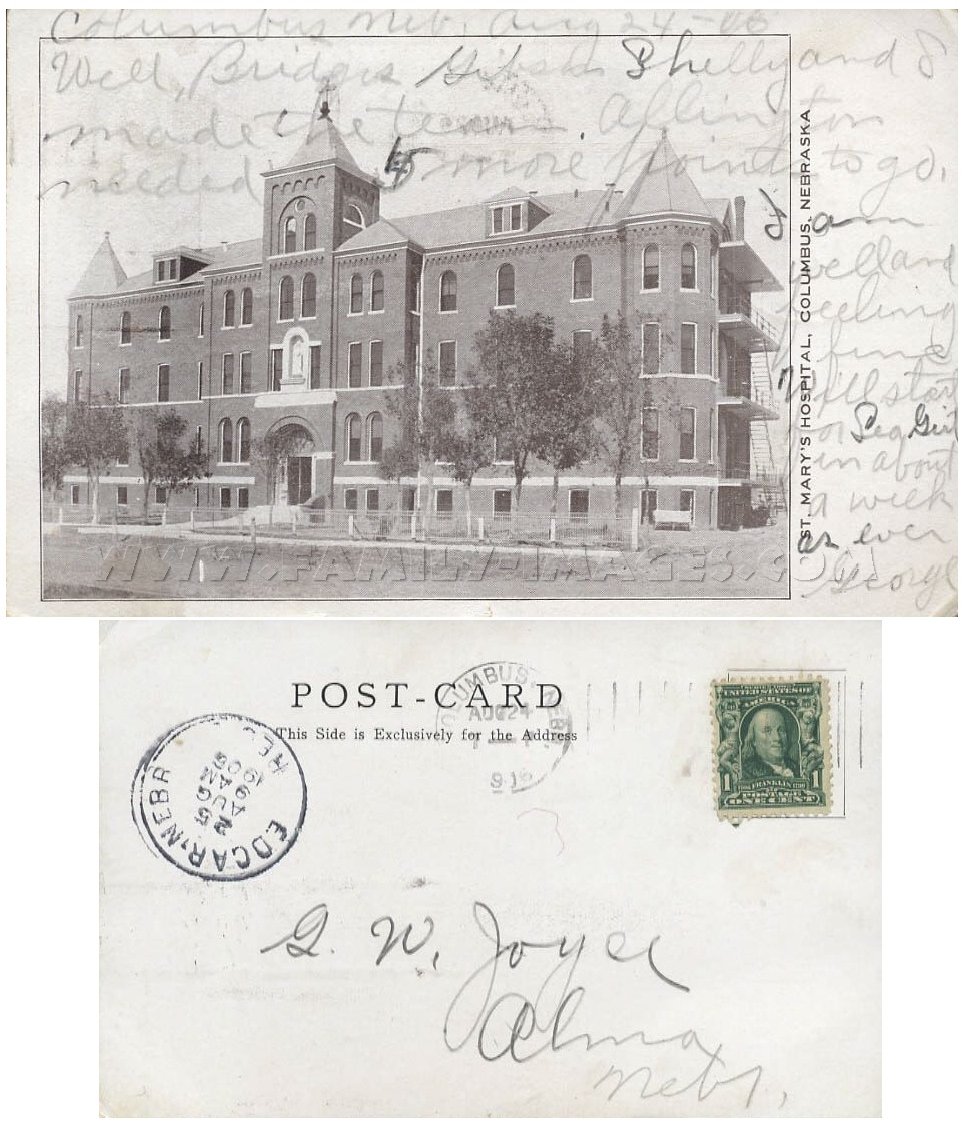 Columbus Neb, Aug 24-06
Well, Bridges Gibson Shelly and I
made the team. Allington
needed 45 more points to go,
I am
well and
feeling
fine
Will start
for Sea Girt
in about
a week
as ever
George
ST. MARY'S HOSPITAL, COLUMBUS, NEBRASKA
WWW.FAMILY-IMAGES.COM
POST-CARD
This Side is Exclusively for the Address
COLUMBUS, NEB.
AUG 24
EDGAR, NEBR
AUG
25
9 AM
1906
REC'D
SERIES 1902
UNITED STATES OF
AMERICA
1 FRANKLIN 1
POSTAGE
ONE CENT
G. W. Joyce
Alma
Nebr.